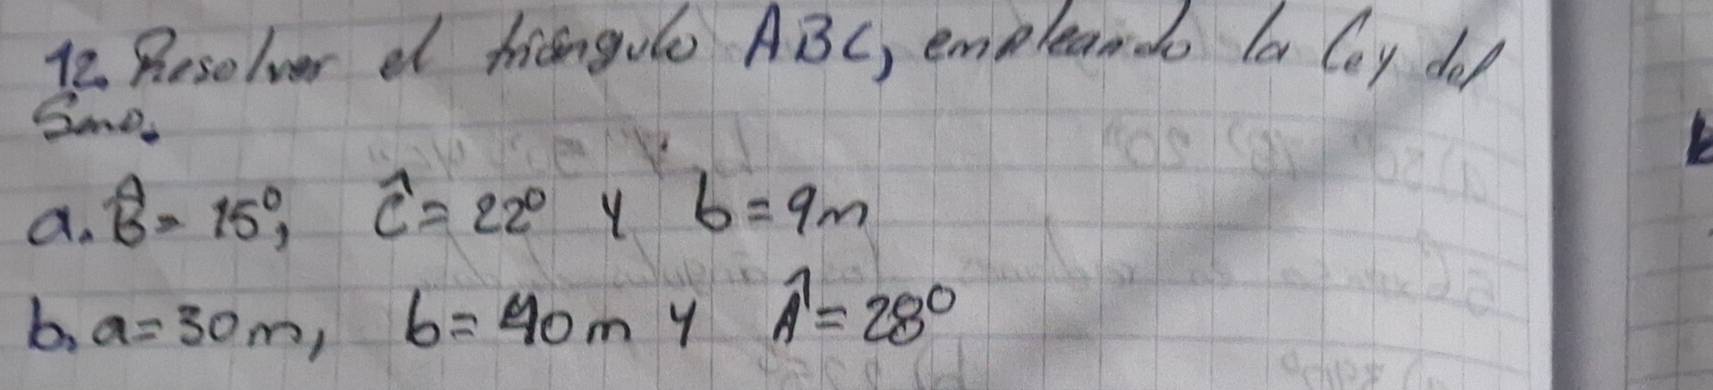 12. Resolver el triángulo ABC, empleando la ley del
Seno.
a. B̂ = 15°, Ĉ = 22° y b = 9m
b. a = 30m, b = 40m y Â = 28°